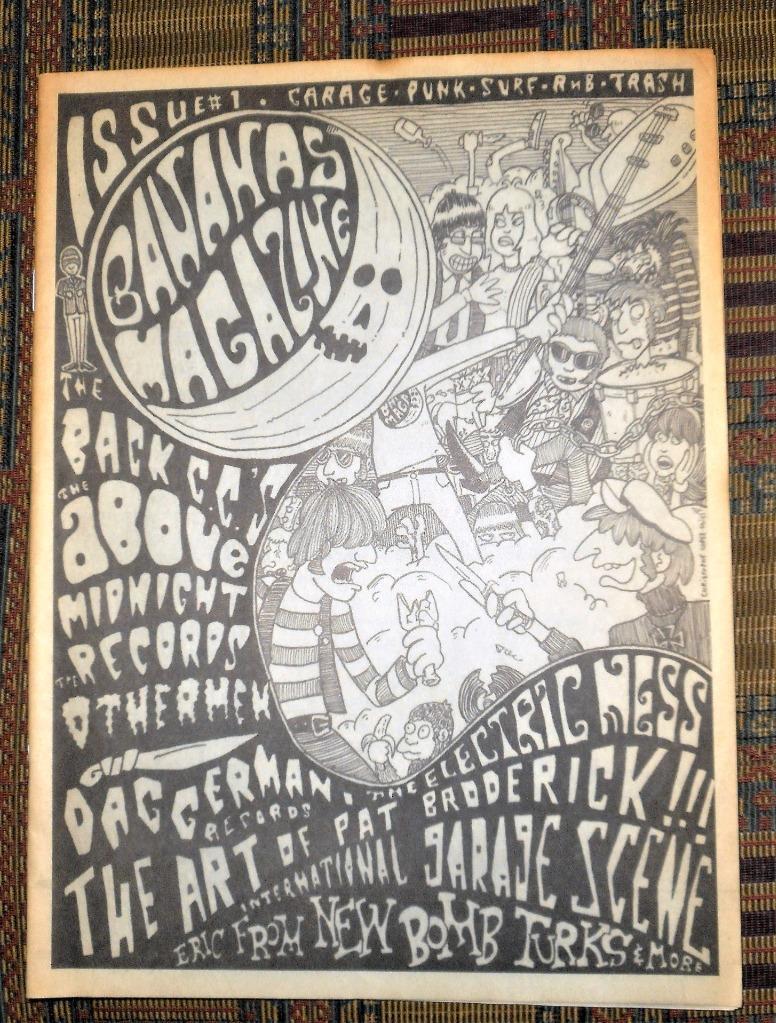 ISSUE #1 · GARAGE · PUNK · SURF · RNB · TRASH
BANANAS
MAGAZINE
THE
BACK C.C.'S
THE
ABOVE
MIDNIGHT
RECORDS
THE
OTHERMEN
DAGGERMAN
RECORDS
THE ELECTRIC MESS
THE ART OF PAT BRODERICK!!!
INTERNATIONAL GARAGE SCENE
ERIC FROM NEW BOMB TURKS & MORE